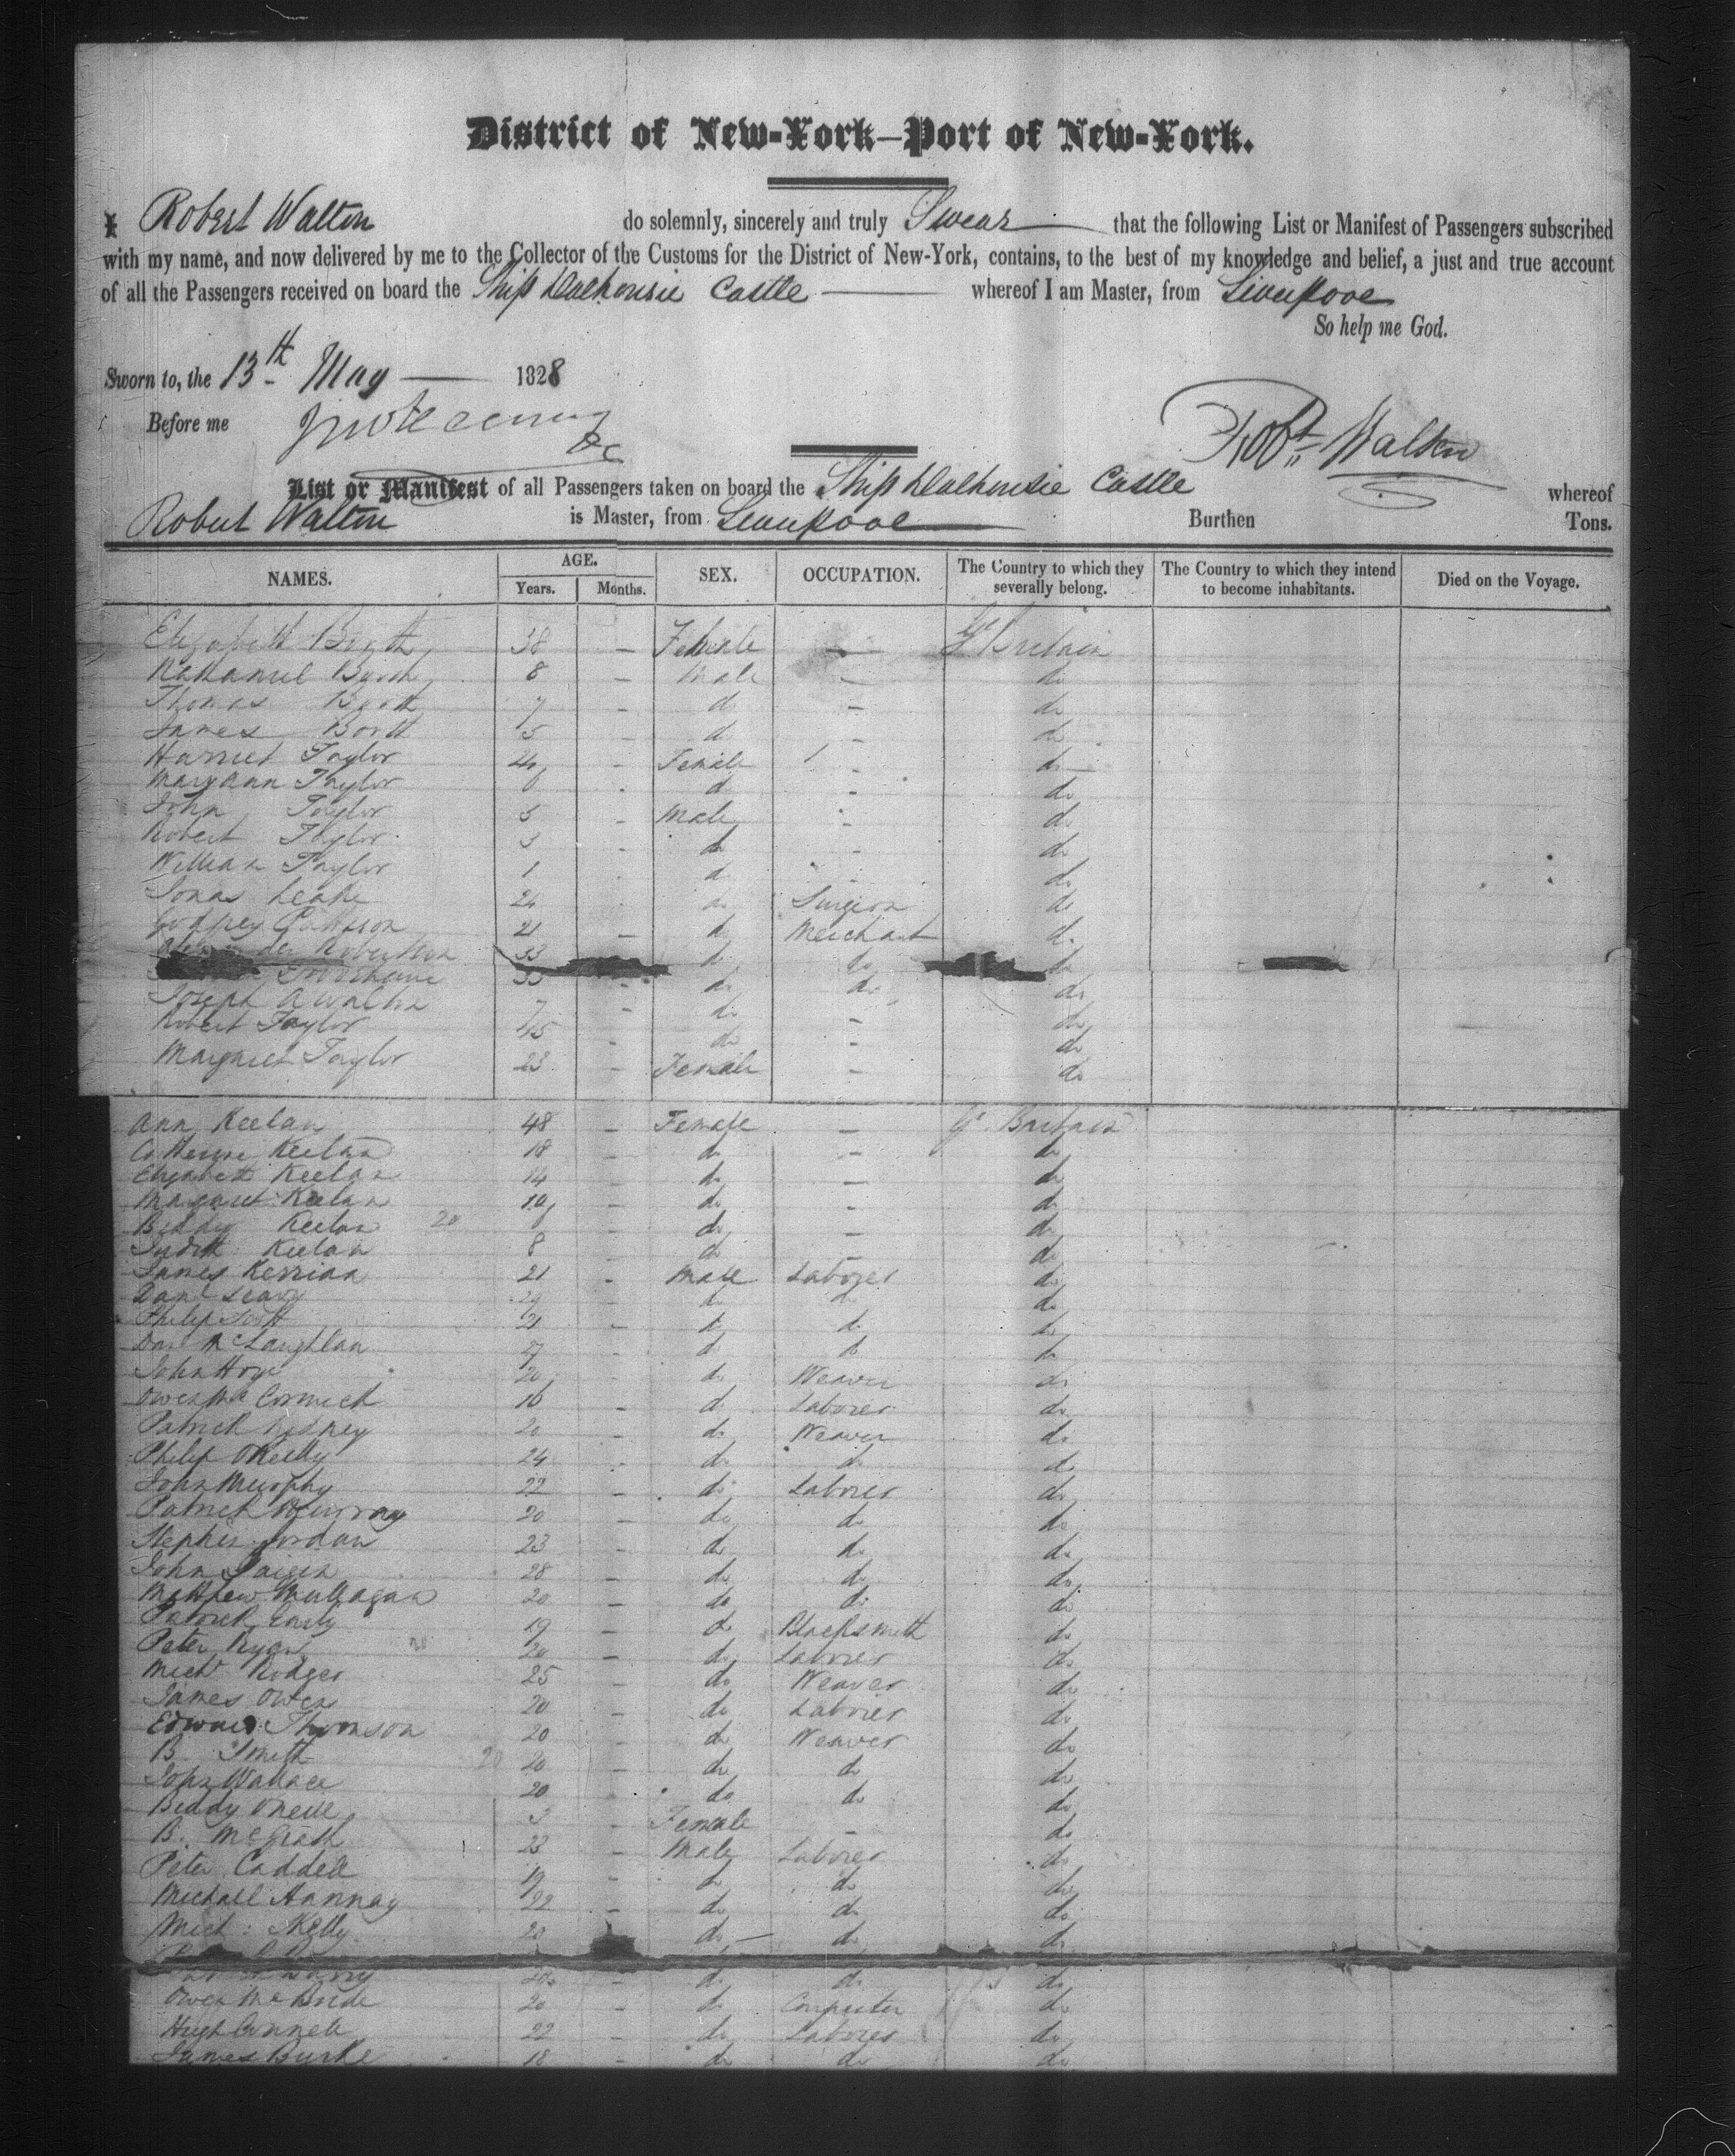 District of New-York—Port of New-York.
I Robert Walton do solemnly, sincerely and truly Swear that the following List or Manifest of Passengers subscribed
with my name, and now delivered by me to the Collector of the Customs for the District of New-York, contains, to the best of my knowledge and belief, a just and true account
of all the Passengers received on board the Ship Dalhousie Castle whereof I am Master, from Liverpool
So help me God.
Sworn to, the 13th May 1828
Before me
Robt Walton
List or Manifest of all Passengers taken on board the Ship Dalhousie Castle whereof
Robert Walton is Master, from Liverpool Burthen Tons.
NAMES. AGE. Years. Months. SEX. OCCUPATION. The Country to which they severally belong. The Country to which they intend to become inhabitants. Died on the Voyage.
Elizabeth 38 — Female — Gt Britain
Nathaniel 8 — Male — do
Thomas 7 — do — do
James 5 — do — do
Harriet Taylor Female do
Maryann Taylor 6 do do
John Taylor 5 Male do
Robert Taylor 3 do do
William Taylor 1 do do
Jonas Leake 24 do Surgeon do
Godfrey Pattison 21 — do Merchant do
Robertson 33 do do do
35 do do do
Joseph A Walton 7 — do — do
Robert Taylor 45 — do — do
Margaret Taylor 23 — Female — do
Ann Keelan 48 — Female — Gt Britain
Catherine Keelan 18 — do — do
Elizabeth Keelan 14 — do — do
Margaret Keelan 10 — do — do
Biddy Keelan 20 do — do
Judith Keelan 8 — do — do
James Kerrian 21 - Male Laborer do
Danl Leavy 29 — do do do
Philip Scott 21 — do do do
McLaughlan do do do
John Hoye 20 do Weaver do
Owen McCormick 16 — do Laborer do
Patrick 20 — do Weaver do
Philip OReilly 24 do do do
John Murphy 22 — do Laborer do
Patrick Murray 20 — do do do
Stephen Jordan 23 — do do do
John 28 — do do do
Matthew Mullagan 20 — do do do
Patrick Early 19 — do Blacksmith do
Peter Ryan 20 20 — do Laborer do
Michl Rodger 25 — do Weaver do
James Owen 20 — do Laborer do
Edward Thomson 20 — do Weaver do
B. Smith 20 20 — do do do
John Wallace 20 — do do do
Biddy ONeill 3 — Female — do
B. McGrath 23 — Male Laborer do
Peter Caddell 19 - do do do
Michael Hannay 22 — do do do
Mich: Kelly 20 do — do do
20 — do do do
Owen McBride 20 — do Carpenter do
Hugh Connell 22 — do Laborer do
James Burke 18 — do do do